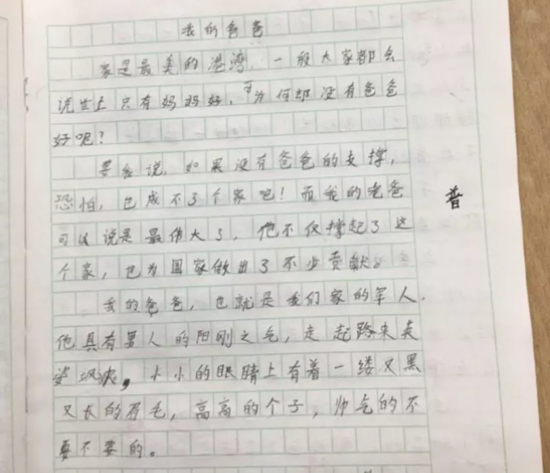 我的爸爸
家是最美的港湾，一般大家都会
说世上只有妈妈好，可为何却没有爸爸
好呢？
要我说，如果没有爸爸的支撑，
恐怕，也成不了个家吧！而我的爸爸
可以说是最伟大了，他不仅撑起了这
个家，也为国家做出了不少贡献。
我的爸爸，也就是我们家的军人，
他具有男人的阳刚之气，走起路来英
姿飒爽，小小的眼睛上有着一缕又黑
又长的眉毛，高高的个子，帅气的不
要不要的。
普